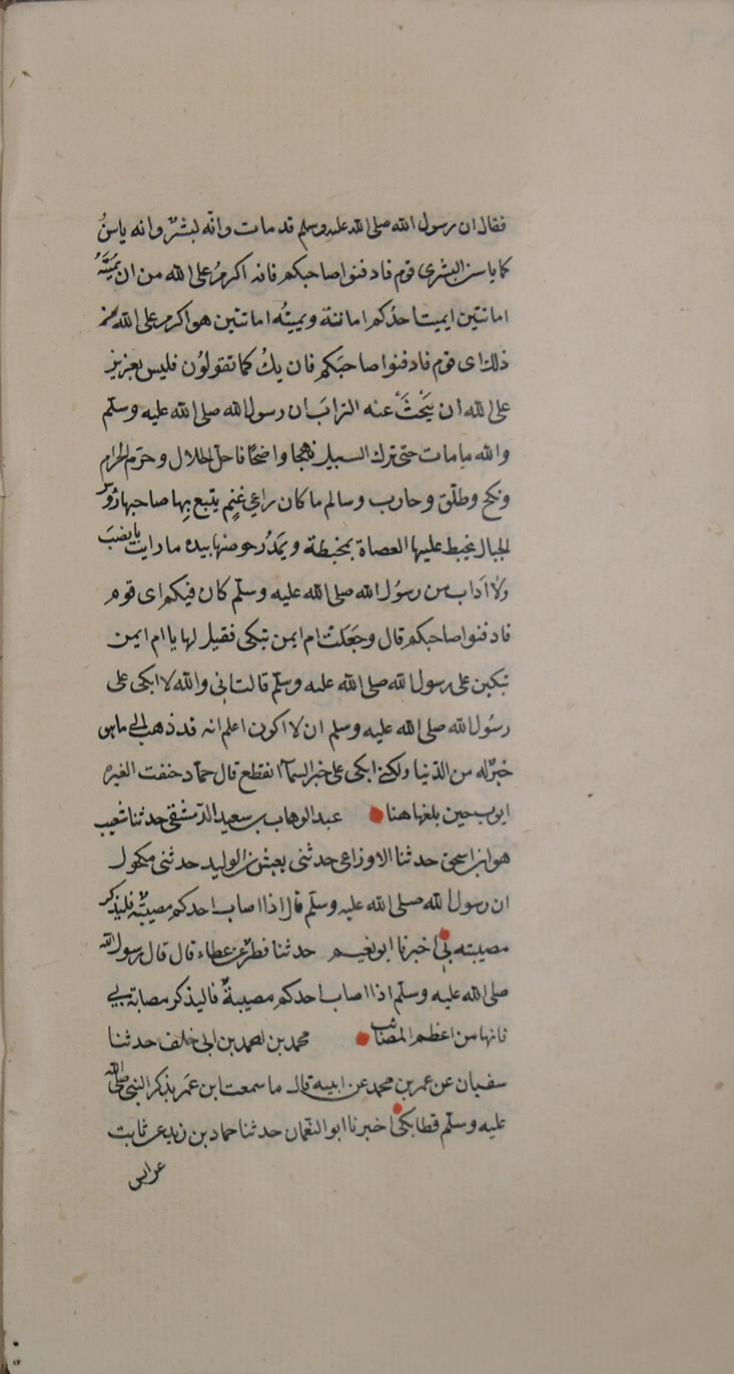 فقال ان رسول الله صلى الله عليه وسلم قد مات وانّه لبشرٌ وانه ياسنُ
كما ياسن البشر اى قوم فادفنوا صاحبكم فانه اكرمُ على الله من ان يميتَهُ
اماتتين ايميت احدُكم اماتة ويميتُه اماتتين هو اكرم على الله من
ذلك اى قوم فادفنوا صاحبَكم فان يكُ كما تقولوُن فليس بعزيز
على الله ان يَبْحَثَ عنه الترابَ ان رسول الله صلى الله عليه وسلّم
والله ما مات حتى ترك السبيل نهجا واضحًا فاحلّ الحلال وحرّم الحرام
ونكح وطلّق وحارب وسالم ما كان راعي غنمٍ يتبع بِها صاحبها رؤس
الجبال يخبط عليها العضاة بمخبطة ويَمدُر حوضها بيده بانصَبَ
ولا ادَاب من رسوُل الله صلى الله عليه وسلّم كان فيكم اى قوم
فادفنوا صاحبكم قال وجَعَلت ام ايمن تبكى فقيل لها يا ام ايمن
تبكين على رسول الله صلى الله عليه وسلّم قالت اني والله لا ابكى على
رسُول الله صلى الله عليه وسلم ان لا اكون اعلم انه قد ذهب الى ما هو
خيرٌ له من الدّنيا ولكنى ابكى على خبر السمآء انقطع قال حمّاد خنقت العبرة
ايوب حين بلغ هاهنا عبد الوهاب بن سعيد الدّمشقى حدثنا شعيب
هو ابن اسحق حدثنا الاوزاعى حدثنى يعيش بن الوليد حدثنى مكحول
ان رسول الله صلى الله عليه وسلّم قال اذا اصاب احدكم مصيبةٌ فليذكر
مصيبته بى اخبرنا ابو نعيم حدثنا فطرٌ عن عطاء قال قال رسول الله
صلى الله عليه وسلّم اذا اصاب احدكم مصيبةٌ فاليذكر مصابه بي
فانها من اعظم المصَائب محمد بن احمد بن ابى خلف حدثنا
سفيان عن عمر بن محمد عن ابيه قال ما سمعت ابن عمَر يذكر النبى صلى الله
عليه وسلّم قط الا بكى اخبرنا ابو النعمان حدثنا حماد بن زيد عن ثابت
عن انس